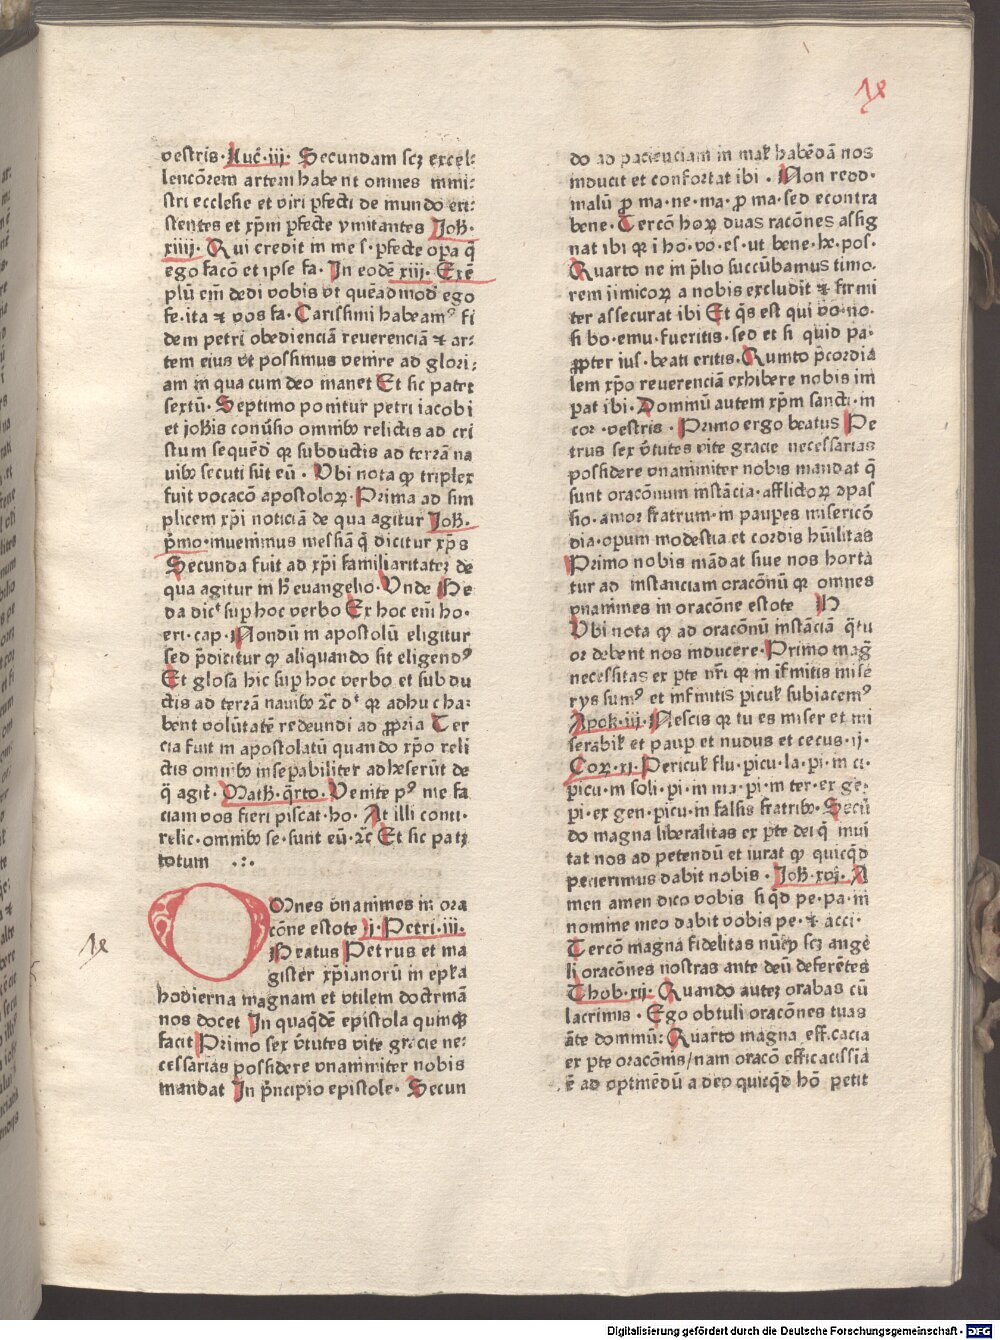 vestris·Auc̄·iij· Secundam scꝫ excel⸗
lencōrem artem habent omnes mini⸗
stri ecclesie et viri ꝑfecti de mundo exi⸗
stentes et xp̄m ꝑfecte ymitantes Joh̄·
xiiij· Qui credit in me s·ꝑfecte oꝑa q̄
ego facō et ipse fa·In eodē xiij· Exē
plū em̄ dedi vobis vt quēadmod̄ ego
fe·ita ⁊ vos fa· Carissimi habeamꝰ fi
dem petri obedienciā reuerenciā ⁊ ar⸗
tem eius vt possimus venire ad glori⸗
am in qua cum deo manet Et sic patet
sextū· Septimo ponitur petri iacobi
et joh̄is conūsio omnibꝫ relictis ad cri
stum sequēd̄ qꝛ subductis ad terrā na
uibꝫ secuti sūt eū · Vbi nota ꝙ triplex
fuit vocacō apostoloꝝ·Prima ad sim
plicem xp̄i noticiā de qua agitur Joh̄·
p̄mo·inuenimus messiā q̄ dicitur xp̄s
Secunda fuit ad xp̄i familiaritateꝫ de
qua agitur in h̄ euangelio·Vnde Be
da dicᵗ suꝑ hoc verbo Ex hoc em̄ ho·
eri·cap·Nondū in apostolū eligitur
sed p̄dicitur ꝙ aliquando sit eligendꝰ
Et glosa hic suꝑ hoc verbo et subdu
ctis ad terrā nauibꝫ ⁊c̄ dᵗ qꝛ adhuc ha⸗
bent volūtatē redeundi ad ꝓpria Ter
cia fuit in apostolatū quando xp̄o reli
ctis omnibꝫ inseꝑabiliter adheserūt de
q̄ agit᷑· Math̄·q̄rto·Venite pꝰ me fa
ciam vos fieri piscat·ho· At illi conti·
relic·omnibꝫ se·sunt eū·⁊c̄ Et sic patꝫ
totum ·:·
Omnes vnanimes in ora
cōne estote j·Petri·iij·
Beatus Petrus et ma
gister xp̄ianorū in ep̄ła
hodierna magnam et vtilem doctrinā
nos docet In quaqdē epistola quinqꝫ
facit Primo sex v̄tutes vite gracie ne⸗
cessarias possidere vnanimiter nobis
mandat In p̄ncipio epistole· Secun
do ad pacienciam in maƚ habēdā nos
inducit et confortat ibi · Non redd·
malū ꝓ ma·ne·ma·ꝓ ma·sed econtra
bene·Tercō hoꝝ duas racōnes assig
nat ibi qꝛ i ho·vo·es·ut bene·he·pos·
Quarto ne in p̄lio succūbamus timo·
rem īimicoꝝ a nobis excludit ⁊ firmi
ter assecurat ibi Et q̄s est qui vo·no·
si bo·emu·fueritis·sed et si quid pa·
ꝓpter ius·beati eritis·Quinto p̄cordia
lem xp̄o reuerenciā exhibere nobis im
ꝑat ibi·Dominū autem xp̄m sancti·in
cor·vestris· Primo ergo beatus Pe
trus sex v̄tutes vite gracie necessarias
possidere vnanimiter nobis mandat q̄
sunt oracōnum instācia·afflictoꝝ ꝯpas
sio·amor fratrum·in pauꝑes misericō
dia·opum modestia et cordis hūilitas
Primo nobis mādat siue nos horta
tur ad instanciam oracōnū qꝛ omnes
vnanimes in oracōne estote N
Vbi nota ꝙ ad oracōnū instāciā q̄tu
or debent nos inducere·Primo maḡ
necessitas ex ꝑte nr̄i qꝛ in īfinitis mise
rys sumꝰ et infinitis picuƚ subiacemꝰ
Apok·iij·Nescis qꝛ tu es miser et mi
serabiƚ et pauꝑ et nudus et cecus·ij·
Coꝝ·xj·Pericuƚ flu·picu·la·pi·in ci·
picu·in soli·pi·in ma·pi·in ter·ex ge·
pi·ex gen·picu·in falsis fratribꝫ·Secū
do magna liberalitas ex ꝑte dei q̄ inui
tat nos ad petendū et iurat ꝙ quicq̄d
petierimus dabit nobis · Joh̄·xvj· A
men amen dico vobis si q̄d pe·pa·in
nomine meo dabit vobis pe·⁊ acci·
Tercō magna fidelitas nūcp̄ scꝫ ange
li oracōnes nostras ante deū deferētes
Thob·xij· Quando auteꝫ orabas cū
lacrimis · Ego obtuli oracōnes tuas
āte dominū: Quarto magna efficacia
ex ꝑte oracōnis/nam oracō efficacissīa
ē ad optinēdū a deo quicq̄d hō petit